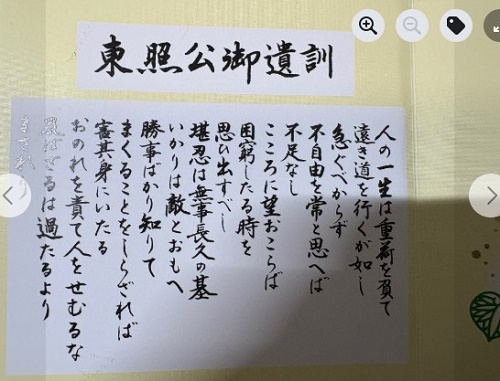 東照公御遺訓
人の一生は重荷を負て
遠き道を行くが如し
急ぐべからず
不自由を常と思へば
不足なし
こころに望おこらば
困窮したる時を
思ひ出すべし
堪忍は無事長久の基
いかりは敵とおもへ
勝事ばかり知りて
まくることをしらざれば
害其身にいたる
おのれを責て人をせむるな
及ばざるは過たるより
まされり